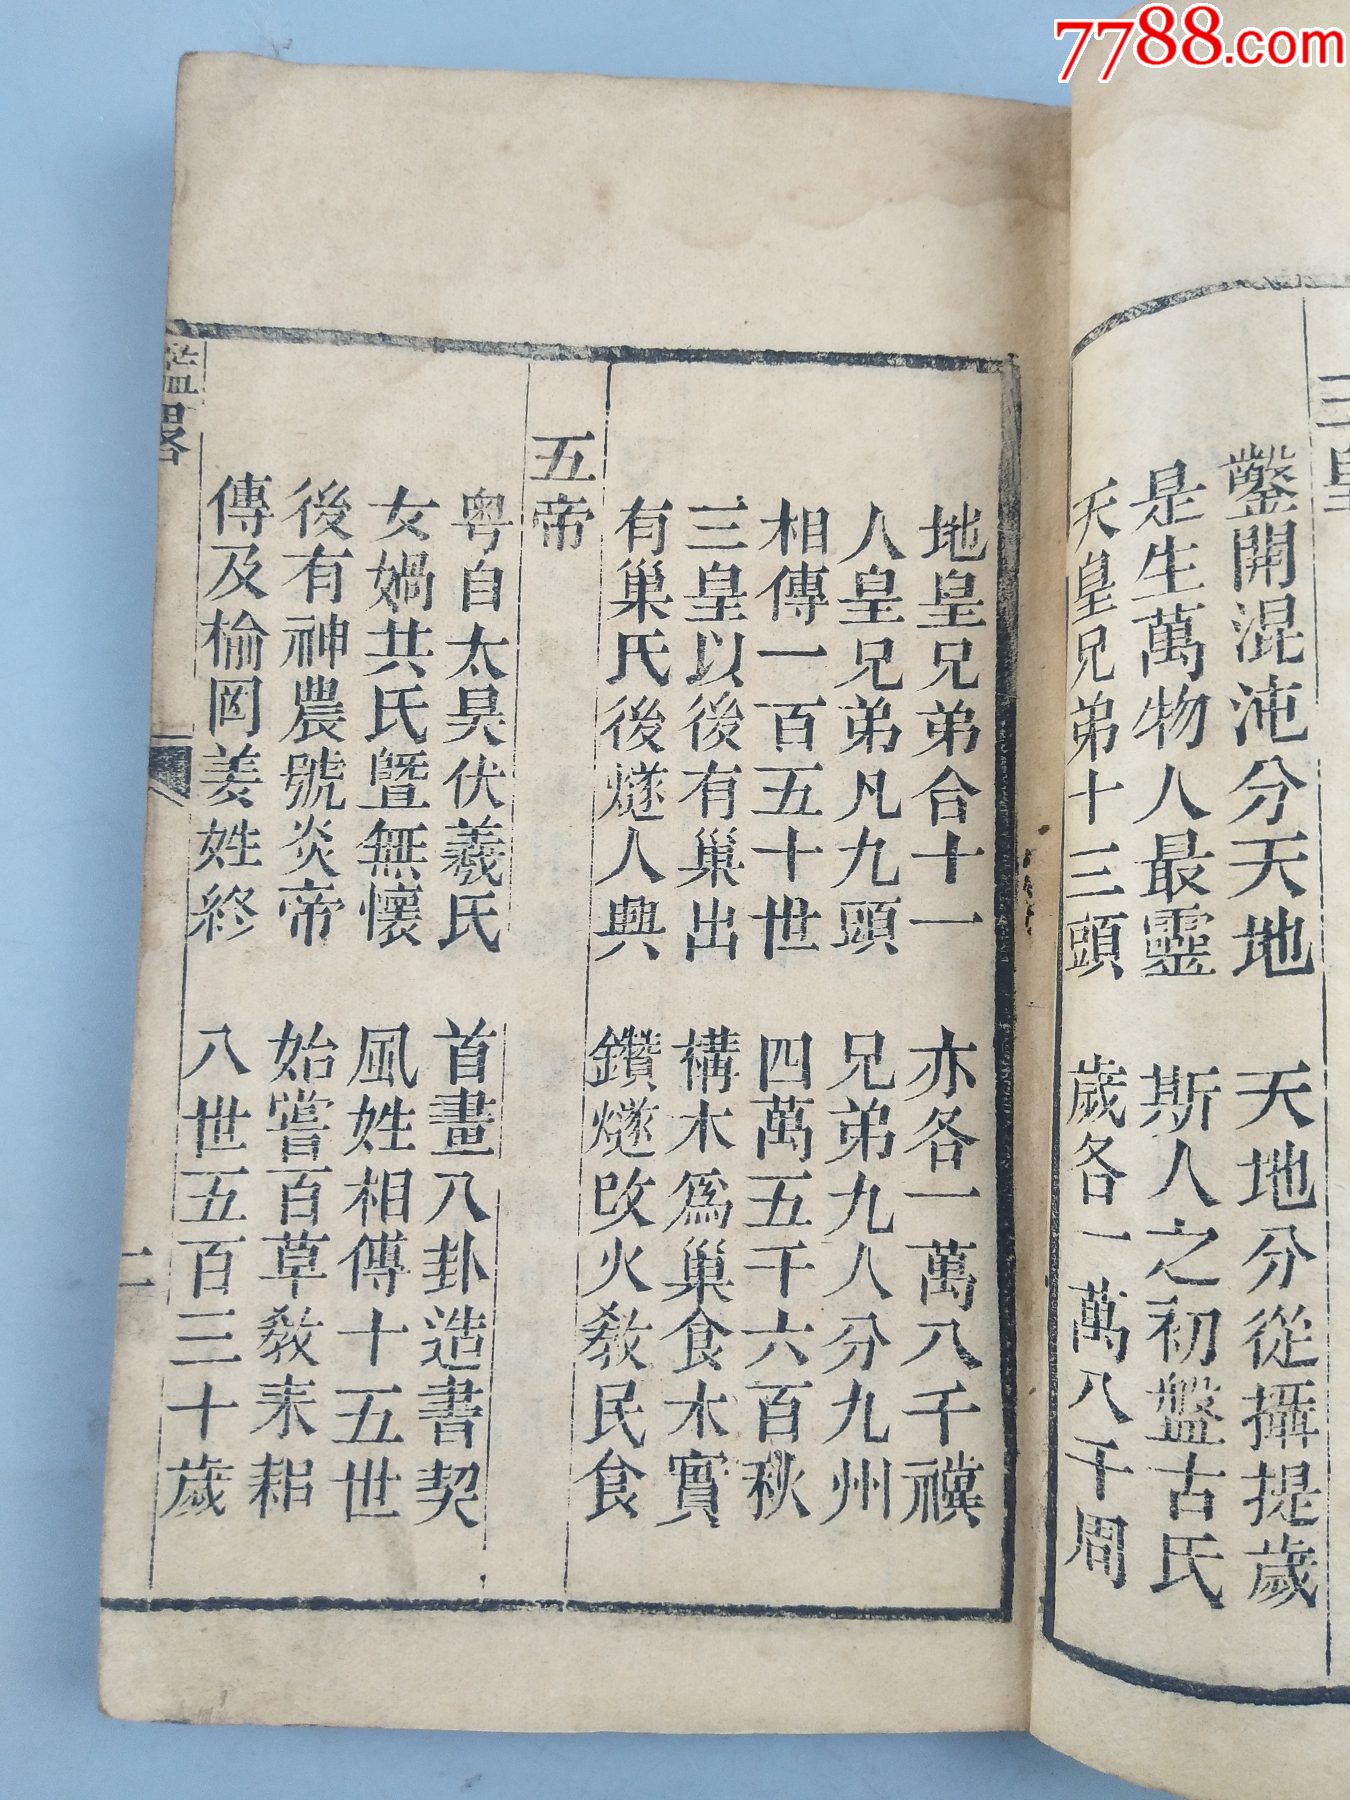 7788.com
三皇
鑿開混沌分天地 天地分從攝提歲
是生萬物人最靈 斯人之初盤古氏
天皇兄弟十三頭 歲各一萬八千周
地皇兄弟合十一 亦各一萬八千禩
人皇兄弟凡九頭 兄弟九人分九州
相傳一百五十世 四萬五千六百秋
三皇以後有巢出 構木爲巢食木實
有巢氏後燧人興 鑽燧改火敎民食
五帝
粤自太昊伏羲氏 首畫八卦造書契
女媧共氏曁無懷 風姓相傳十五世
後有神農號炎帝 始嘗百草敎耒耜
傳及榆罔姜姓終 八世五百三十歲
鑑畧
二